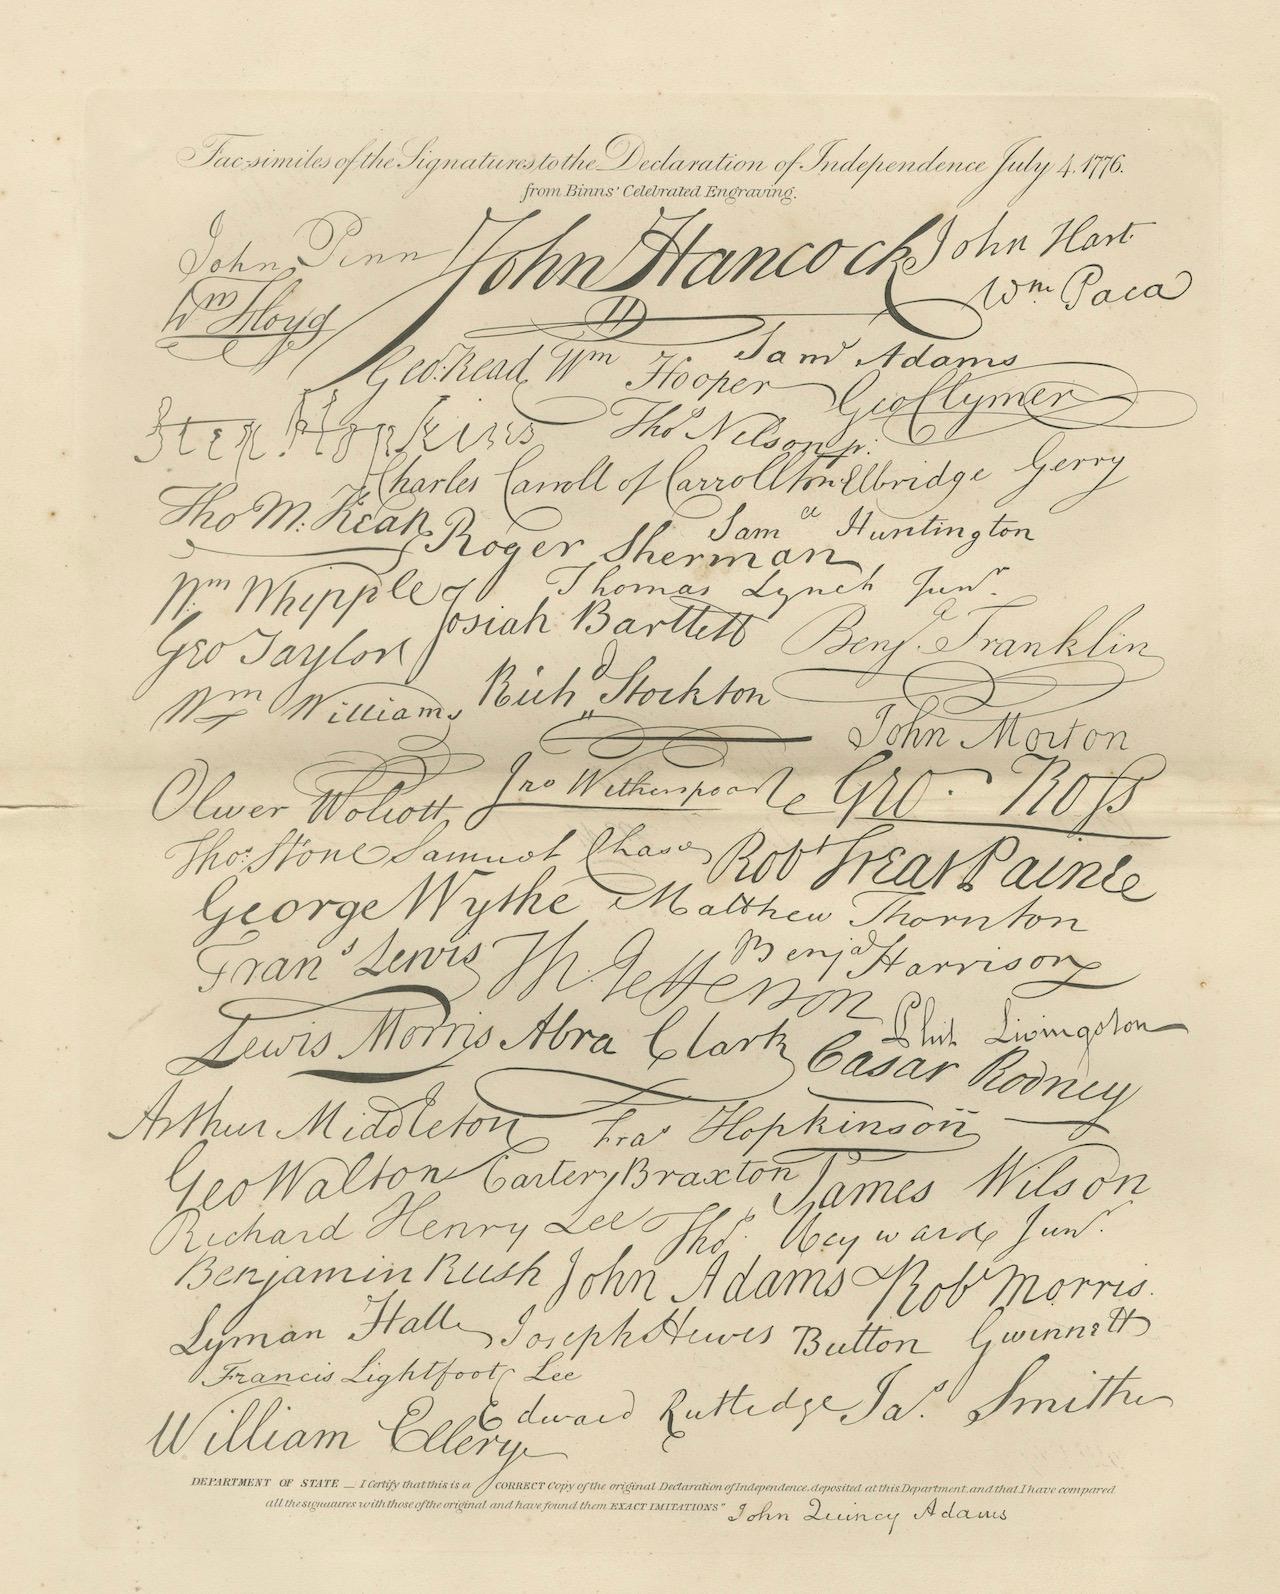 Fac-similes of the Signatures to the Declaration of Independence July 4. 1776.
from Binns' Celebrated Engraving.
John Penn John Hancock John Hart
Wm Floyd Wm. Paca
Geo. Read Wm Hooper Saml Adams
Geo Clymer
Step. Hopkins Thos Nelson jr.
Charles Carroll of Carrollton Elbridge Gerry
Tho M. Kean Roger Sherman Samel Huntington
Wm Whipple Thomas Lynch Junr.
Josiah Bartlett Benja. Franklin
Geo Taylor
Wm Williams Richd Stockton John Morton
Oliver Wolcott Jno Witherspoon Geo. Ross
Thos. Stone Samuel Chase Robt Treat Paine
George Wythe Matthew Thornton
Frans Lewis Th. Jefferson Benja Harrison
Lewis Morris Abra Clark Phil. Livingston
Cæsar Rodney
Arthur Middleton Fras Hopkinson
Geo Walton Carter Braxton James Wilson
Richard Henry Lee Thos. Heyward Junr.
Benjamin Rush John Adams Robt Morris.
Lyman Hall Joseph Hewes Button Gwinnett
Francis Lightfoot Lee
William Ellery Edward Rutledge Jas. Smith
DEPARTMENT OF STATE — I Certify that this is a CORRECT Copy of the original Declaration of Independence, deposited at this Department, and that I have compared
all the signatures with those of the original and have found them EXACT IMITATIONS" John Quincy Adams